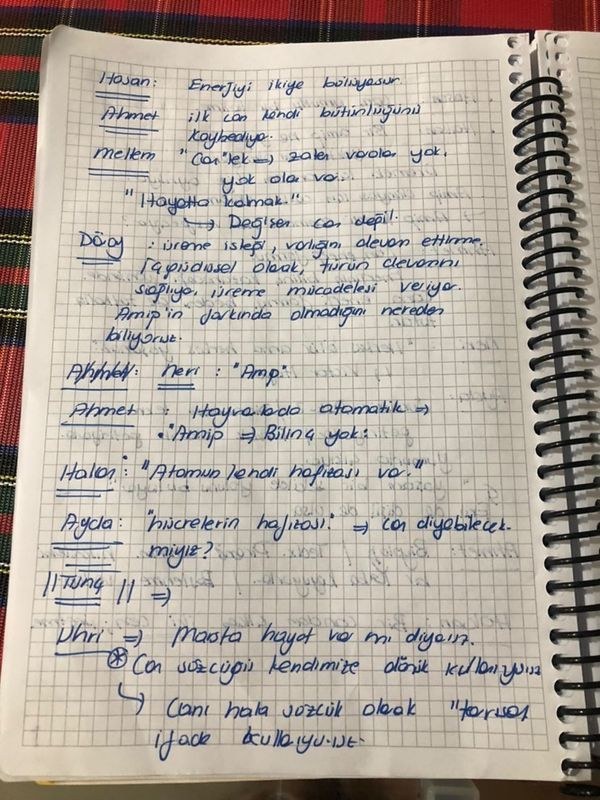 Hasan: Enerjiyi ikiye bölüyosur.
Ahmet ilk can kendi bütünlüğünü
kaybediyo.
mellem "Can"lek => zaten varola yok.
yok ola va.
"Hayatta kalmak."
↳ Değişen can değil.
: üreme isteği, varlığını devam ettirme.
olarak, türün devamını
sağlıyo, üreme mücadelesi veriyo.
Amip'in farkında olmadığını nereden
biliyoruz.
Neri : "Amp"
Ahmet : Hayvalada otomatik =>
• "Amip => Bilinç yok.
"Atomun kendi hafızası va."
Ayda: "hücrelerin hafızası." => can diyebilecek-
miyiz?
||Tunç|| =>
Uhri => Marsta hayat va mı diyoruz.
* Can sözcüğü kendimize dönük kullanıyoruz
↳ Canı hala sözcük olarak "tarısal
ifade kullanıyoruz.